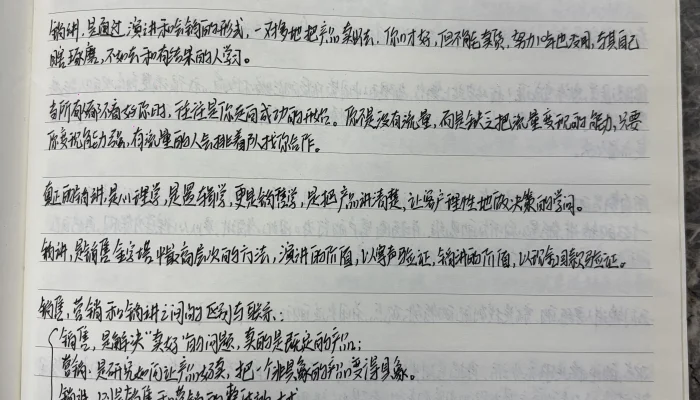 销讲,是通过演讲和会销的形式,一对多地把产品卖出去,你口才好,但不能卖货,努力也没用,与其自己
瞎琢磨,不如去和有结果的人学习。
当所有人都不看好你时,往往是你走向成功的开始。你不是没有流量,而是缺乏把流量变现的能力,只要
你变现能力强,有流量的人会排着队找你合作。
真正的销讲,是心理学,是逻辑学,更是销售学,是把产品讲清楚,让客户理性地做决策的学问。
销讲,是销售金字塔中最高层次的方法,演讲的价值,以掌声验证,销讲的价值,以现金回款验证。
销售,营销和销讲之间的区别与联系:
销售,是解决"卖好"的问题,卖的是既定的产品;
营销,是研究如何让产品好卖,把一个非具象的产品变得具象。
销讲,是销售和营销的